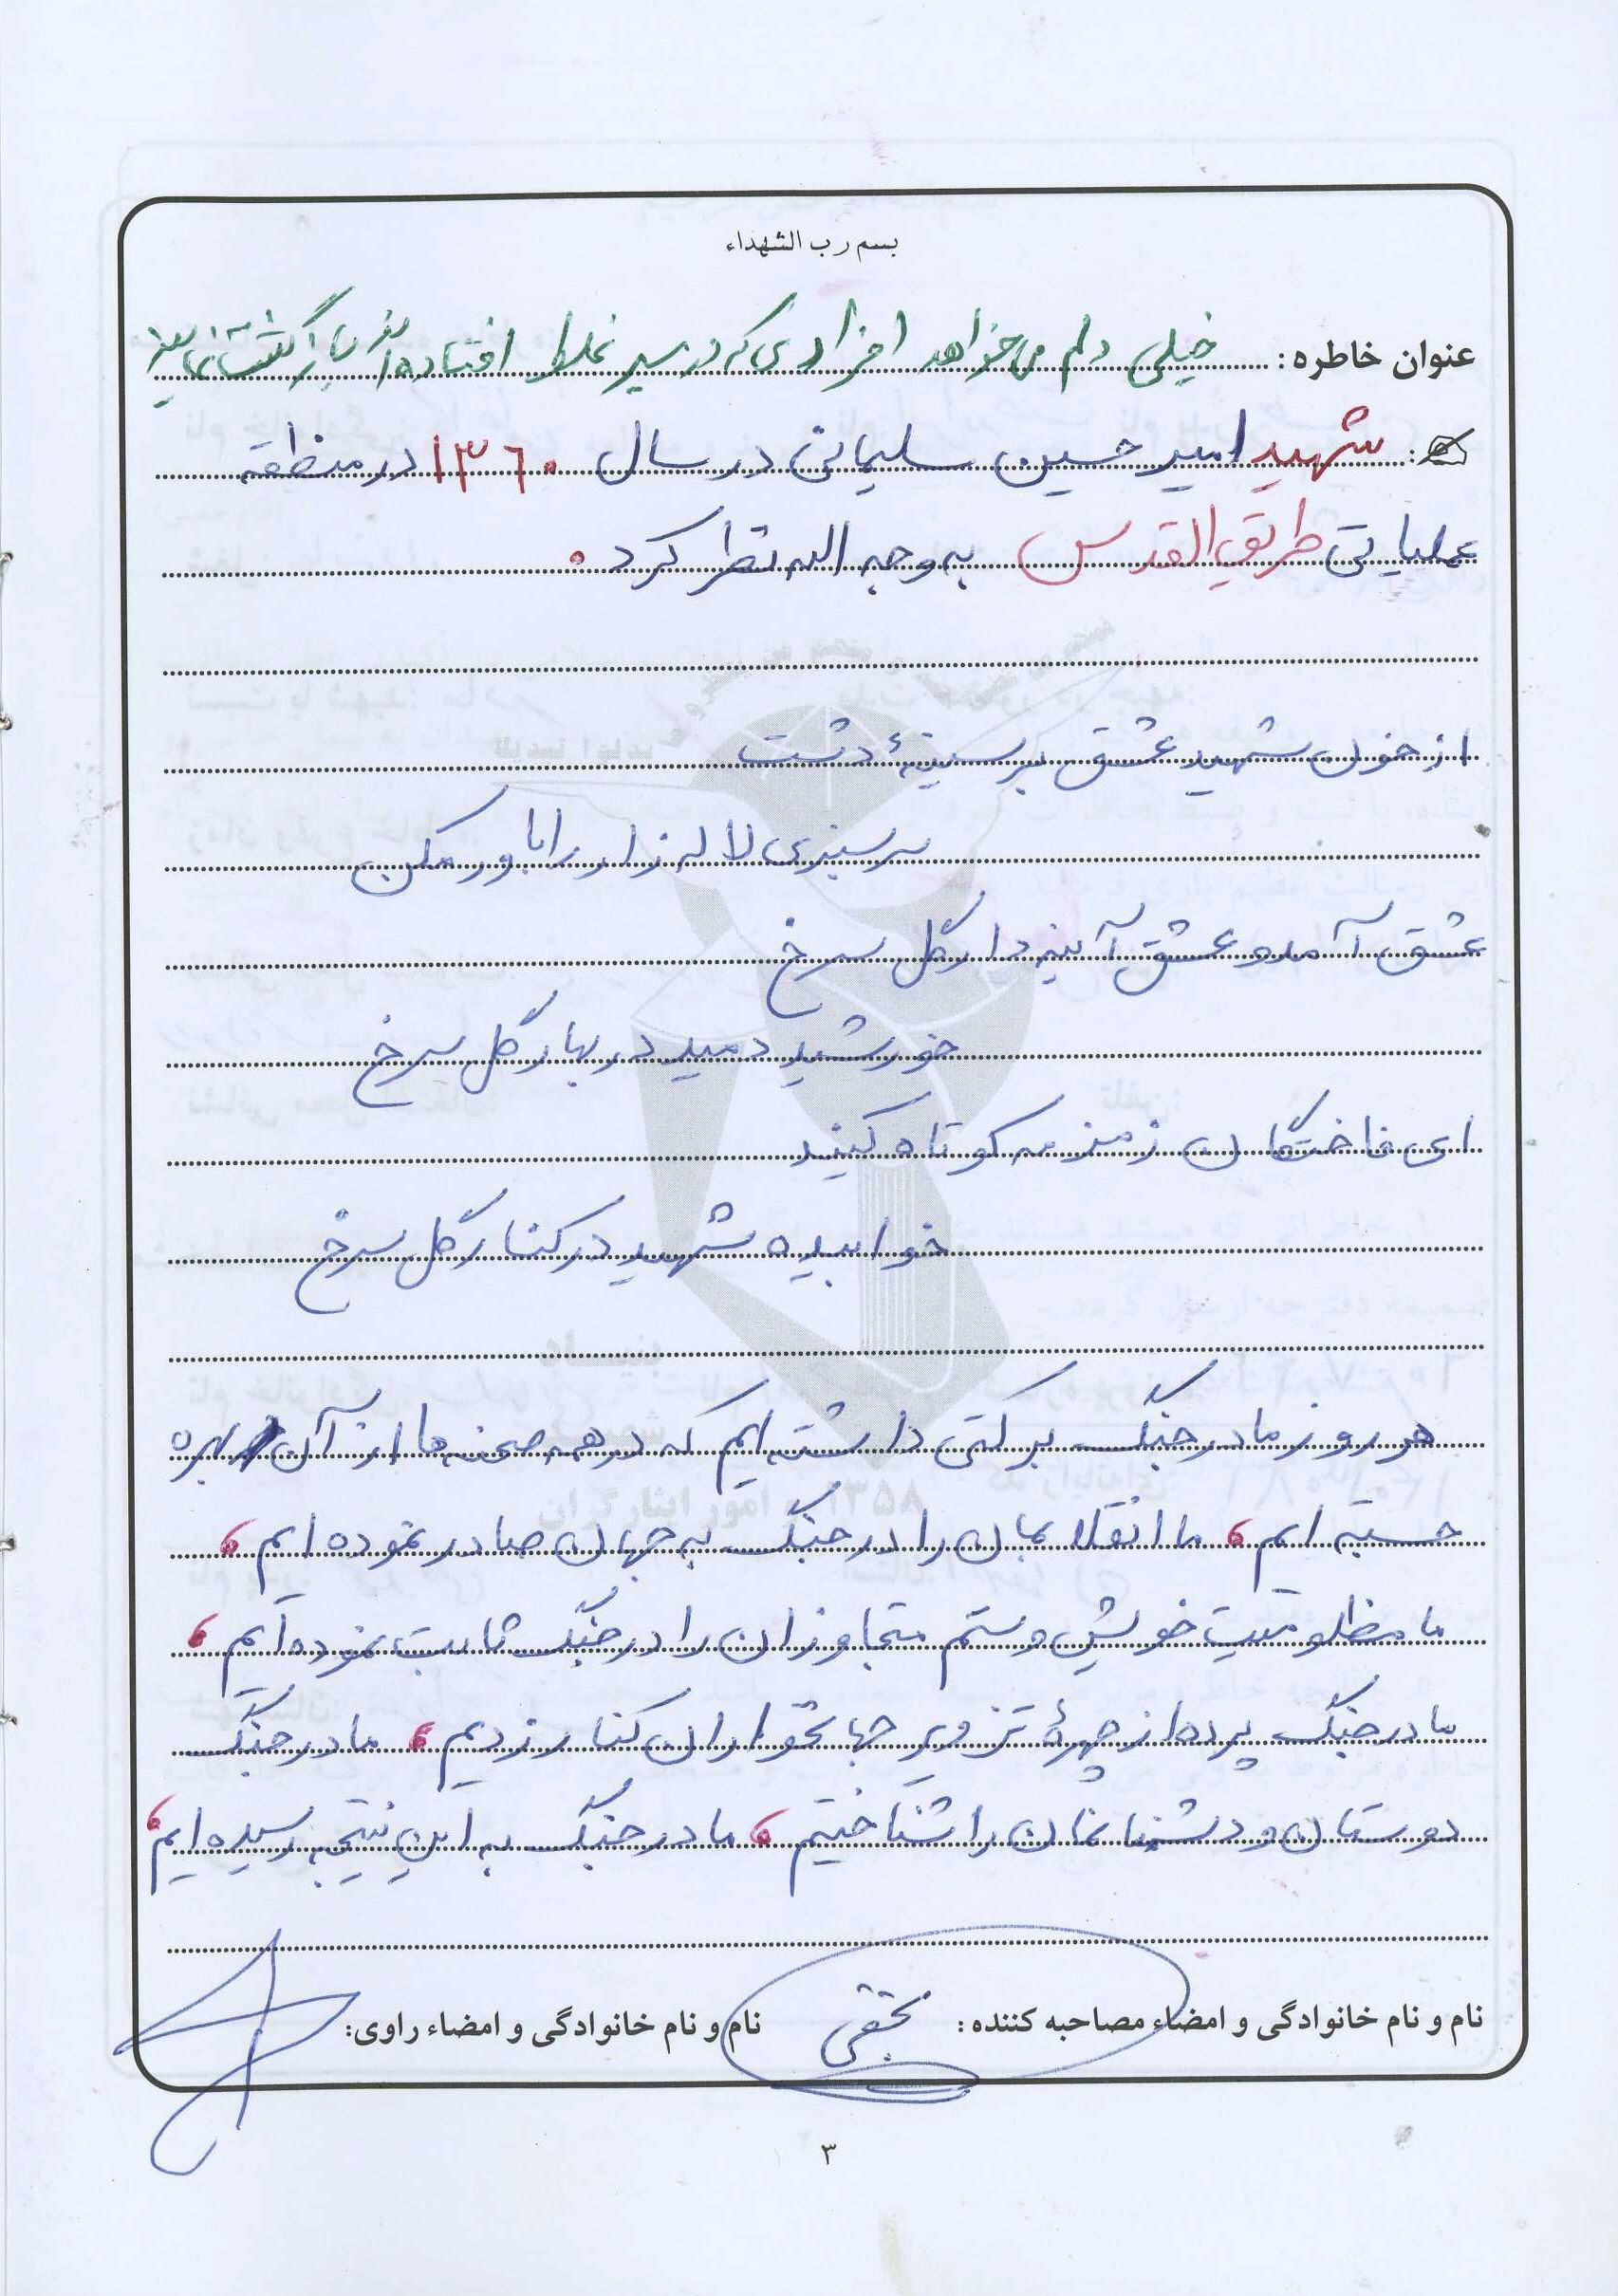 بسم رب الشهداء
عنوان خاطره: خیلی دلم می‌خواهد افرادی که در سیر غلط افتاده‌اند بازگشت نمایند
شهید امیر حسین سلیمانی در سال ۱۳۶۰ در منطقه
عملیاتی طریق القدس به وجه الله نظر کرد.
از خون شهید عشق بر سینهٔ دشت
سرسبزی لاله زار را باور مکن
عشق آمد و عشق آینه دار گل سرخ
خورشید دمید در بهار گل سرخ
ای فاختگان زمزمه کوتاه کنید
خوابیده شهید در کنار گل سرخ
هر روز ما در جنگ برکتی داشته ایم که در همه صحنه ها از آن بهره
جسته ایم، ما انقلابمان را در جنگ به جهان صادر نموده ایم،
ما مظلومیت خویش و ستم متجاوزان را در جنگ ثابت نموده ایم،
ما در جنگ پرده از چهرهٔ تزویر جهانخواران کنار زدیم، ما در جنگ
دوستان و دشمنانمان را شناختیم، ما در جنگ به این نتیجه رسیده ایم،
نام و نام خانوادگی و امضاء مصاحبه کننده: نام و نام خانوادگی و امضاء راوی:
۳